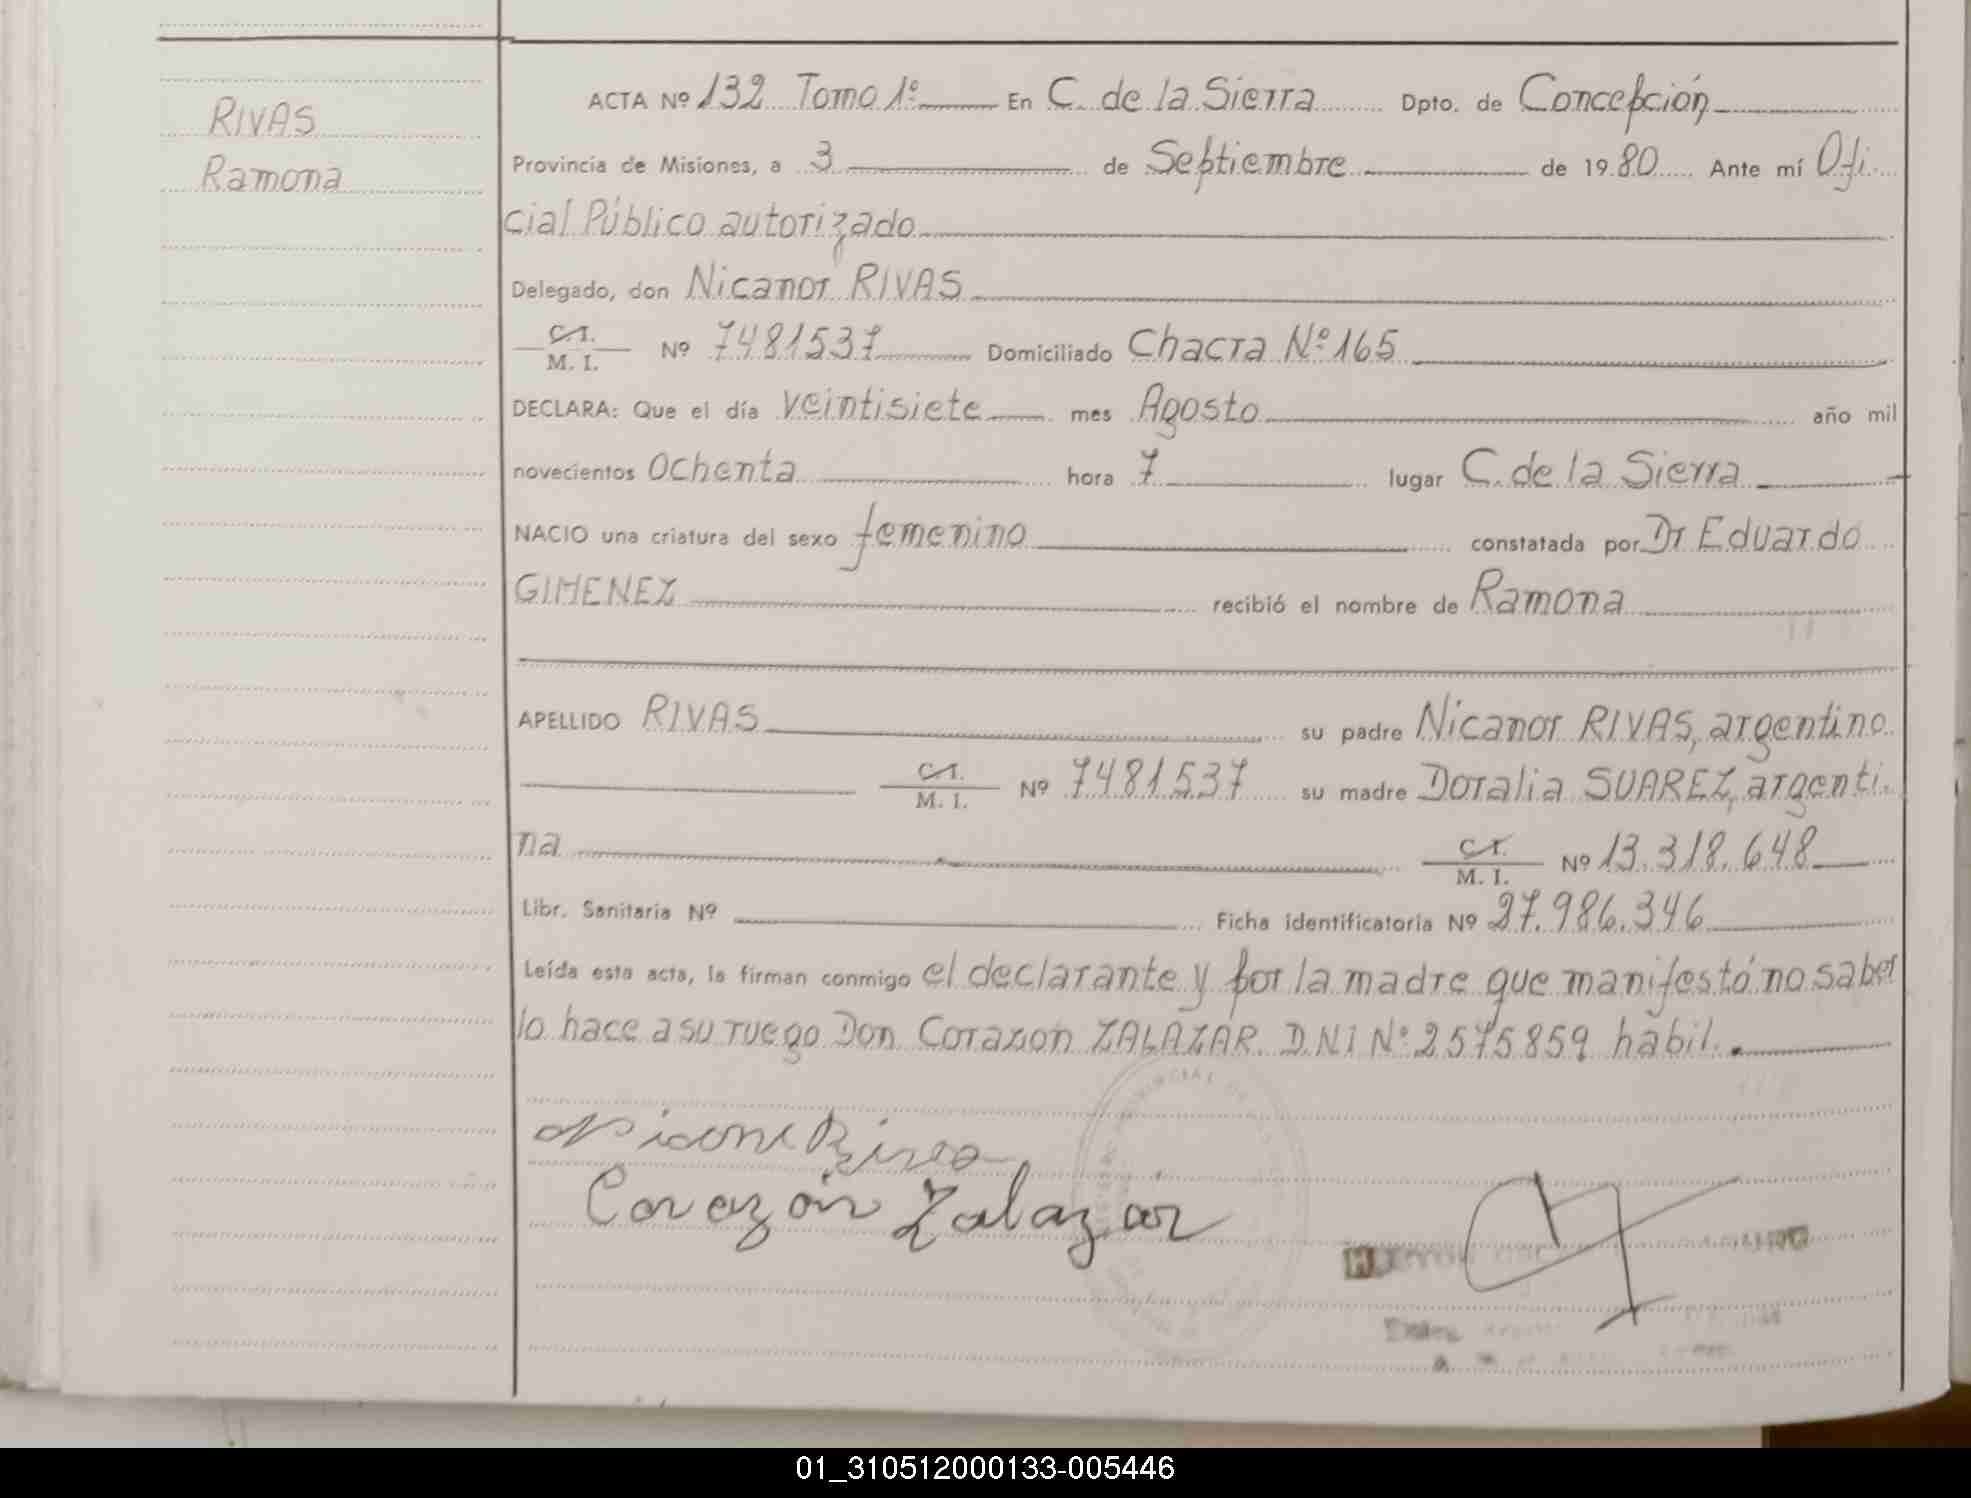 RIVAS
Ramona
ACTA Nº 132 Tomo 1º En C. de la Sierra Dpto. de Concepción
Provincia de Misiones, a 3 de Septiembre de 1980 Ante mí Ofi-
cial Público autorizado
Delegado, don Nicanor RIVAS
C.I.
M. I. Nº 7481537 Domiciliado Chacra Nº 165
DECLARA: Que el día veintisiete mes Agosto año mil
novecientos Ochenta hora 7 lugar C. de la Sierra
NACIO una criatura del sexo femenino constatada por Dr Eduardo
GIMENEZ recibió el nombre de Ramona
APELLIDO RIVAS su padre Nicanor RIVAS, argentino
C.I.
M. I. Nº 7481537 su madre Doralia SUAREZ, argenti-
na C.I.
M. I. Nº 13.318.648
Libr. Sanitaria Nº Ficha identificatoria Nº 27.986.346
Leída esta acta, la firman conmigo el declarante y por la madre que manifestó no saber
lo hace a su ruego Don Corazón ZALAZAR. D.N.I Nº 2575859 habil.
Corazón Zalazar
01_310512000133-005446